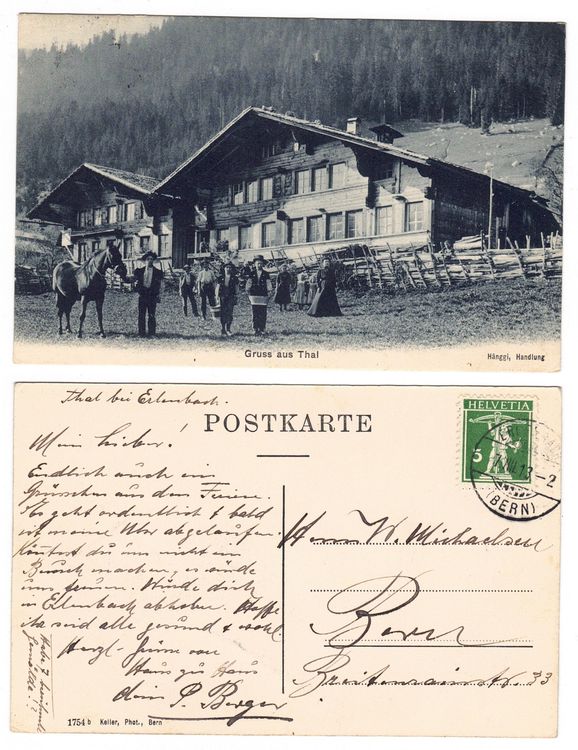 Gruss aus Thal
Hänggi, Handlung
Thal bei Erlenbach.
POSTKARTE
HELVETIA
5
13–2
(BERN)
Mein Lieber!
Endlich auch ein
Grüsschen aus den Ferien.
Es geht ordentlich & bald
ist meine Uhr abgelaufen.
Könntest du uns nicht ein
Besuch machen, es würde
uns freuen. Würde dich
in Erlenbach abholen. Hoffe
ihr seid alle gesund & wohl.
Herzl. Grüsse von
Haus zu Haus
dein P. Berger
Habe 7
Herrn W. Michaelsen
Bern
Breitenrainstr. 33
1754 b Keller, Phot., Bern